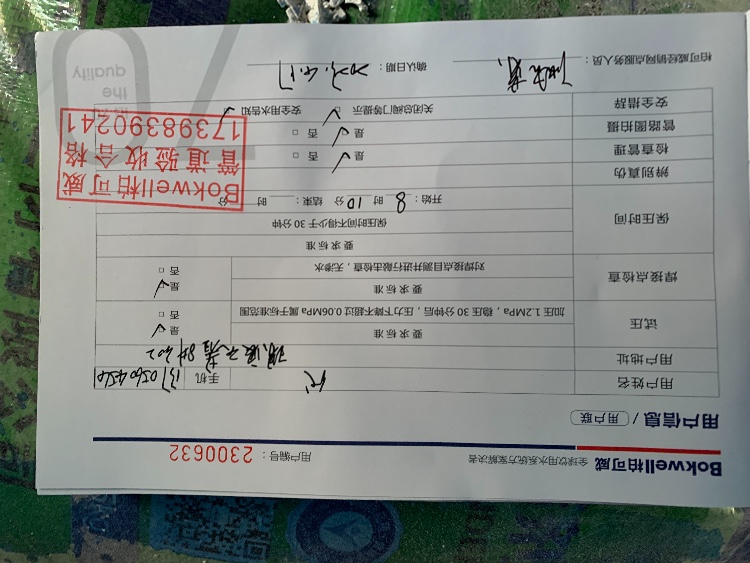 Bokwell柏可威
全球饮用水系统方案解决者
用户编号：2300632
用户信息 / 用户联
用户姓名
手机
用户地址
8# 202
试压
要求标准
加压1.2MPa，稳压30分钟后，压力下降不超过0.06MPa属于标准范围
是
否
焊接点检查
要求标准
对焊接点目测并进行敲击检查，无渗水
是
否
保压时间
要求标准
保压时间不得少于30分钟
开始：8时10分 结束：时 分
辨别真伪
检查管理 是 否
管路图拍摄 是 否
安全措辞 关闭总阀门等提示 安全用水告知
Bokwell柏可威
管道验收合格
17398390241
柏可威经销网点服务人员：
确认日期：
the
quality